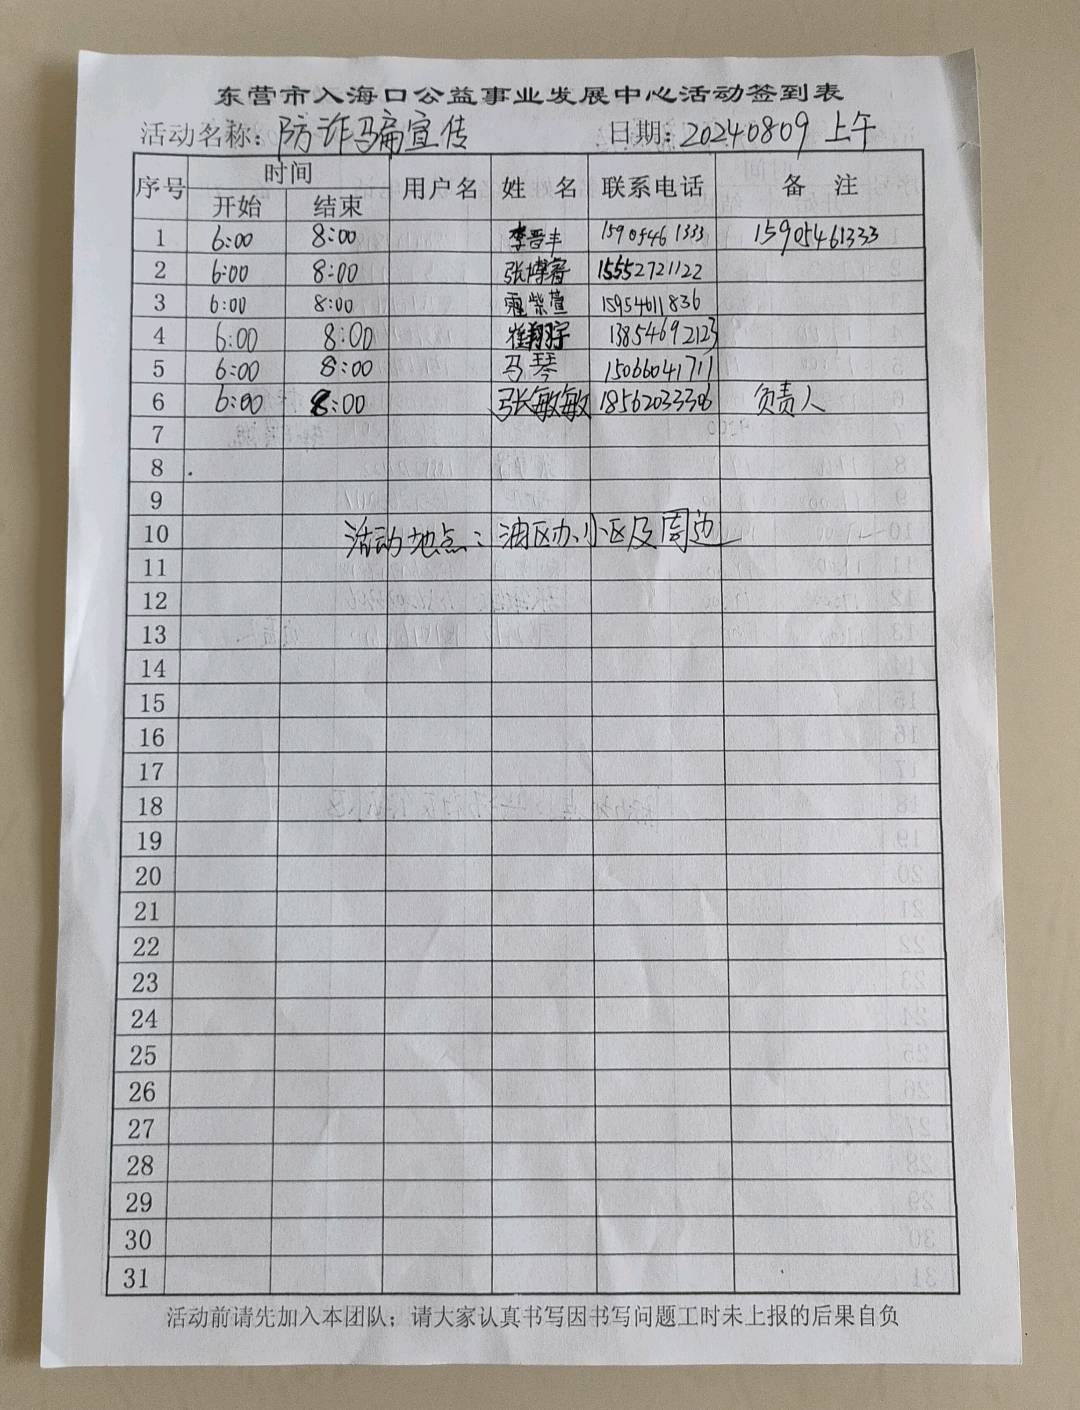 东营市入海口公益事业发展中心活动签到表
活动名称：防诈骗宣传 日期：20240809 上午
序号 时间 用户名 姓 名 联系电话 备 注
开始 结束
1 6:00 8:00 李晋丰 15905461333 15905461333
2 6:00 8:00 张博睿 15552721122
3 6:00 8:00 紫萱 15954611836
4 6:00 8:00 崔翔宇 13854692123
5 6:00 8:00 马琴 15066041711
6 6:00 8:00 张敏敏 18562033306 负责人
7
8
9
10 活动地点：油区办小区及周边
11
12
13
14
15
16
17
18
19
20
21
22
23
24
25
26
27
28
29
30
31
活动前请先加入本团队；请大家认真书写因书写问题工时未上报的后果自负